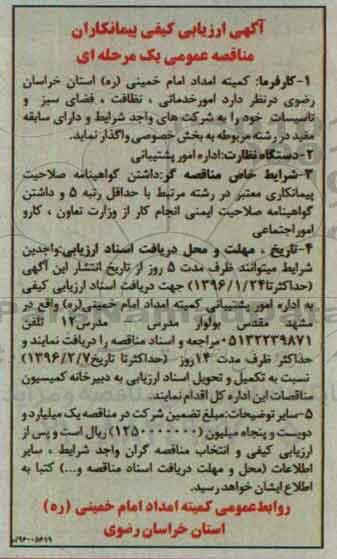 آگهی ارزیابی کیفی پیمانکاران
مناقصه عمومی یک مرحله ای
۱-کارفرما: کمیته امداد امام خمینی (ره) استان خراسان
رضوی درنظر دارد امورخدماتی ، نظافت ، فضای سبز و
تاسیسات خود را به شرکت های واجد شرایط و دارای سابقه
مفید در رشته مربوطه به بخش خصوصی واگذار نماید.
۲-دستگاه نظارت:اداره امور پشتیبانی
۳-شرایط خاص مناقصه گر:داشتن گواهینامه صلاحیت
پیمانکاری معتبر در رشته مرتبط با حداقل رتبه ۵ و داشتن
گواهینامه صلاحیت ایمنی انجام کار از وزارت تعاون ، کارو
اموراجتماعی
۴-تاریخ ، مهلت و محل دریافت اسناد ارزیابی:واجدین
شرایط میتوانند ظرف مدت ۵ روز از تاریخ انتشار این آگهی
(حداکثرتا۱۳۹۶/۱/۲۴) جهت دریافت اسناد ارزیابی کیفی
به اداره امور پشتیبانی کمیته امداد امام خمینی(ره) واقع در
مشهد مقدس بولوار مدرس مدرس۱۲ تلفن
۰۵۱۳۲۲۳۹۸۷۱مراجعه و اسناد مناقصه را دریافت نمایند و
حداکثر ظرف مدت ۱۴روز (حداکثرتا تاریخ۱۳۹۶/۲/۷)
نسبت به تکمیل و تحویل اسناد ارزیابی به دبیرخانه کمیسیون
مناقصات این اداره کل اقدام نمایند.
۵-سایر توضیحات:مبلغ تضمین شرکت در مناقصه یک میلیارد و
دویست و پنجاه میلیون (۱۲۵۰۰۰۰۰۰۰) ریال است و پس از
ارزیابی کیفی و انتخاب مناقصه گران واجد شرایط ، سایر
اطلاعات (محل و مهلت دریافت اسناد مناقصه و...) کتبا به
اطلاع ایشان خواهد رسید.
روابط عمومی کمیته امداد امام خمینی (ره)
استان خراسان رضوی